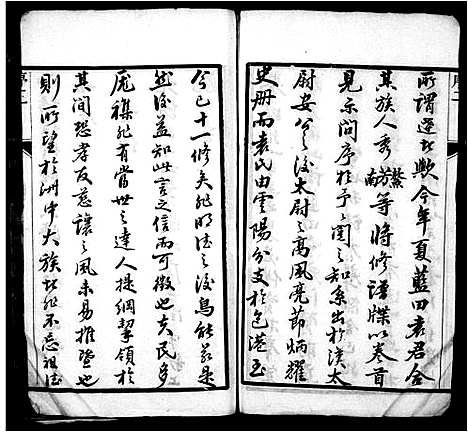 所謂選㪽歟今年夏藍田袁君合
其族人秀芳鰲南等將修譜牒以卷首
見示問序於予予閱之知系出於漢太
尉安公之後太尉之高風亮節炳耀
史冊而袁氏由雲陽分支於邑港至
今已十一修矣非明德之後烏能若是
然後益知此言之信而可徵也夫民多
厖襍非有當世之達人提綱挈領於
其間恐孝友慈讓之風未易推暨也
則所望於洲中大族者非不忘祖德
序二